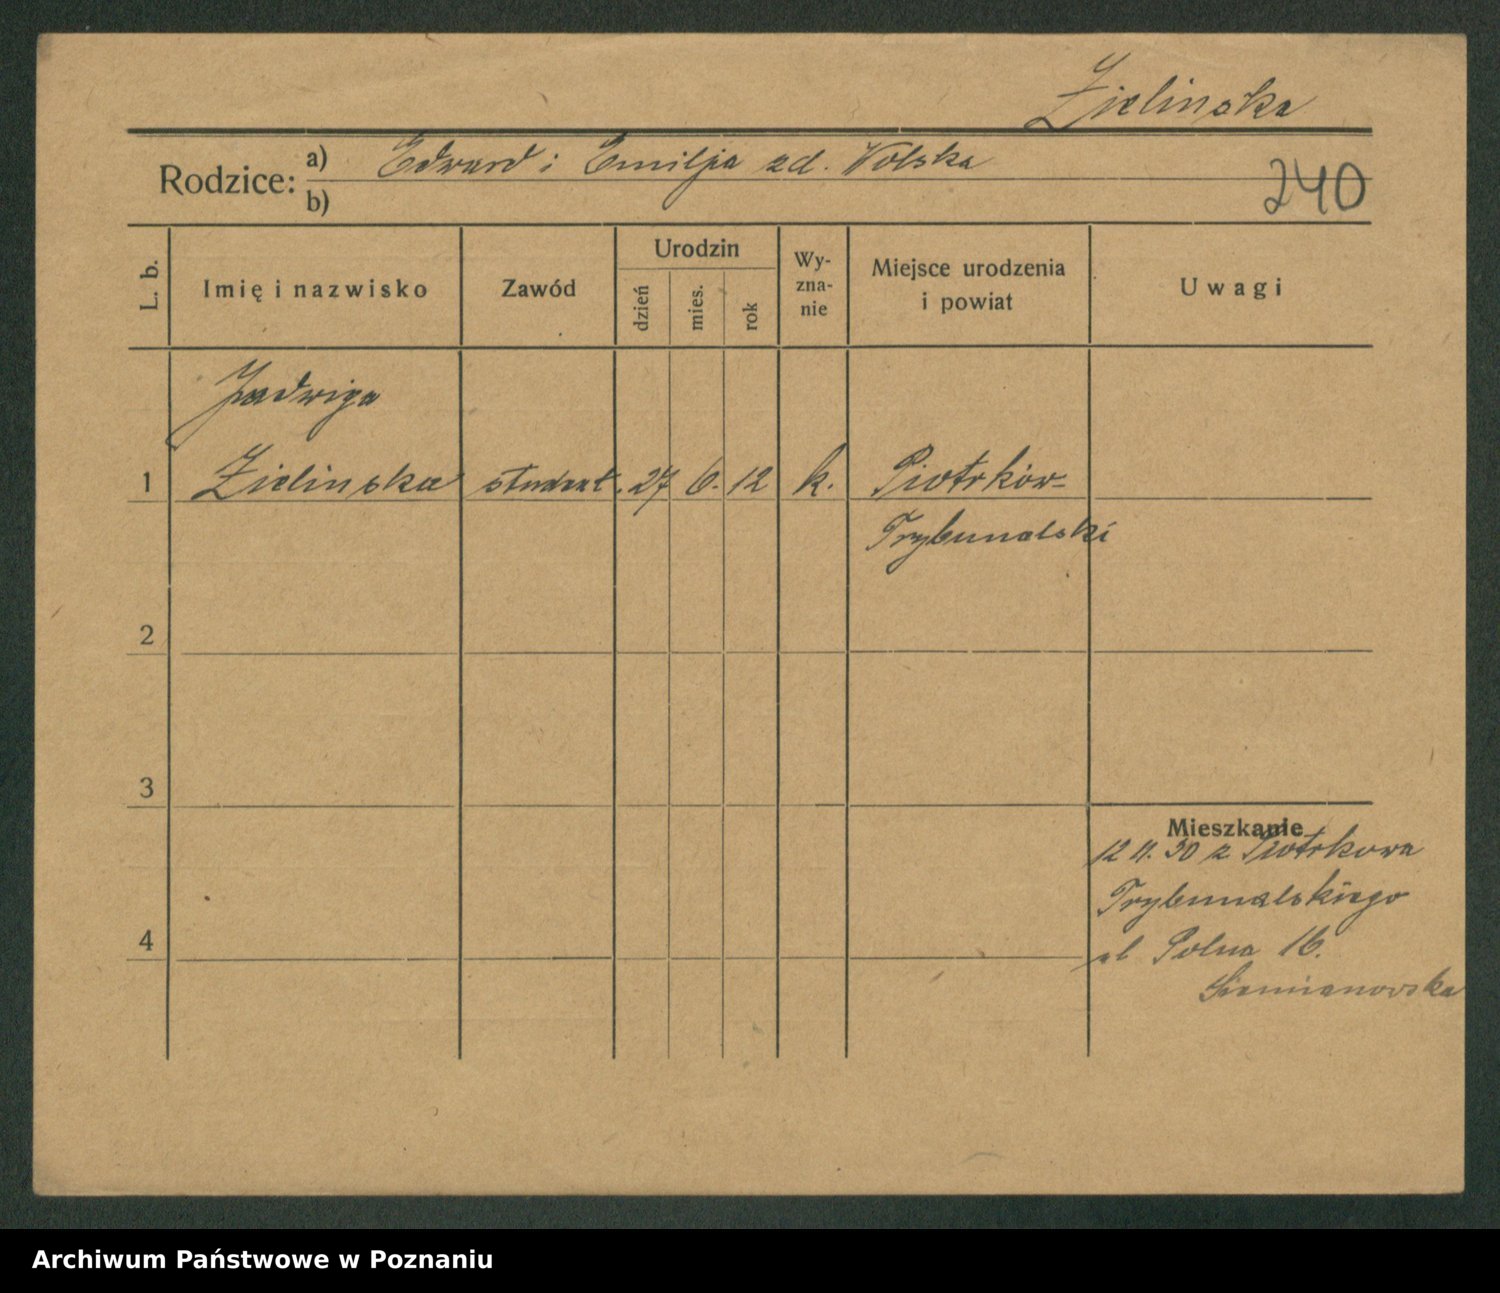 Zielinska
Rodzice: a) Edward i Emilja zd. Wolska
b)
240
L. b. Imię i nazwisko Zawód Urodzin dzień mies. rok Wy-zna-nie Miejsce urodzenia i powiat Uwagi
Jadwiga
1 Zielinska student. 27 6. 12 k. Piotrków-
Trybunalski
2
3
Mieszkanie
12 11. 30 z Piotrkowa
Trybunalskiego
4
ul Polna 16.
Siemianowska
Archiwum Państwowe w Poznaniu